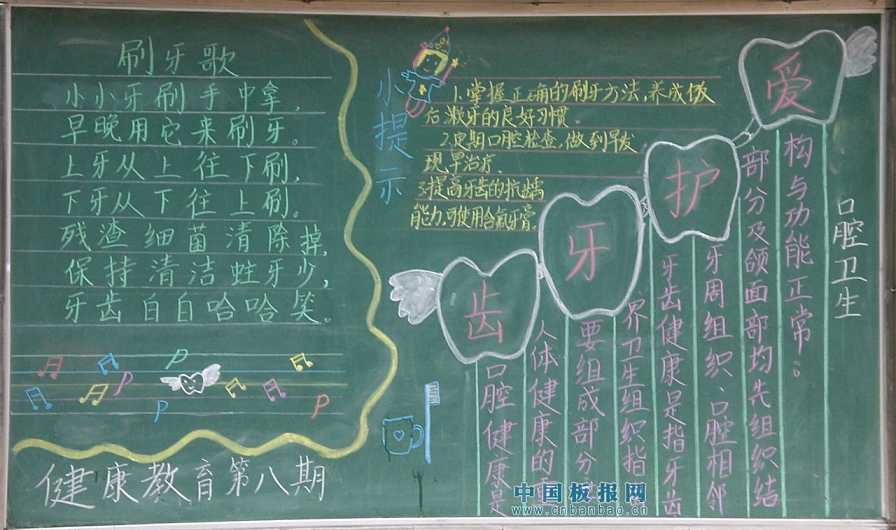 刷牙歌
小小牙刷手中拿，
早晚用它来刷牙。
上牙从上往下刷，
下牙从下往上刷。
残渣细菌清除掉，
保持清洁蛀牙少，
牙齿白白哈哈笑。
健康教育第八期
小提示
1.掌握正确的刷牙方法，养成饭
后漱牙的良好习惯。
2.定期口腔检查，做到早发
现早治疗
3.提高牙齿的抗龋
能力，可使用含氟牙膏
爱护牙齿
口腔卫生
口腔健康是
人体健康的
要组成部分
界卫生组织指
牙齿健康是指牙齿
牙周组织、口腔相邻
部分及颌面部均先组织结
构与功能正常。
中国板报网
www.cnbanbao.cn